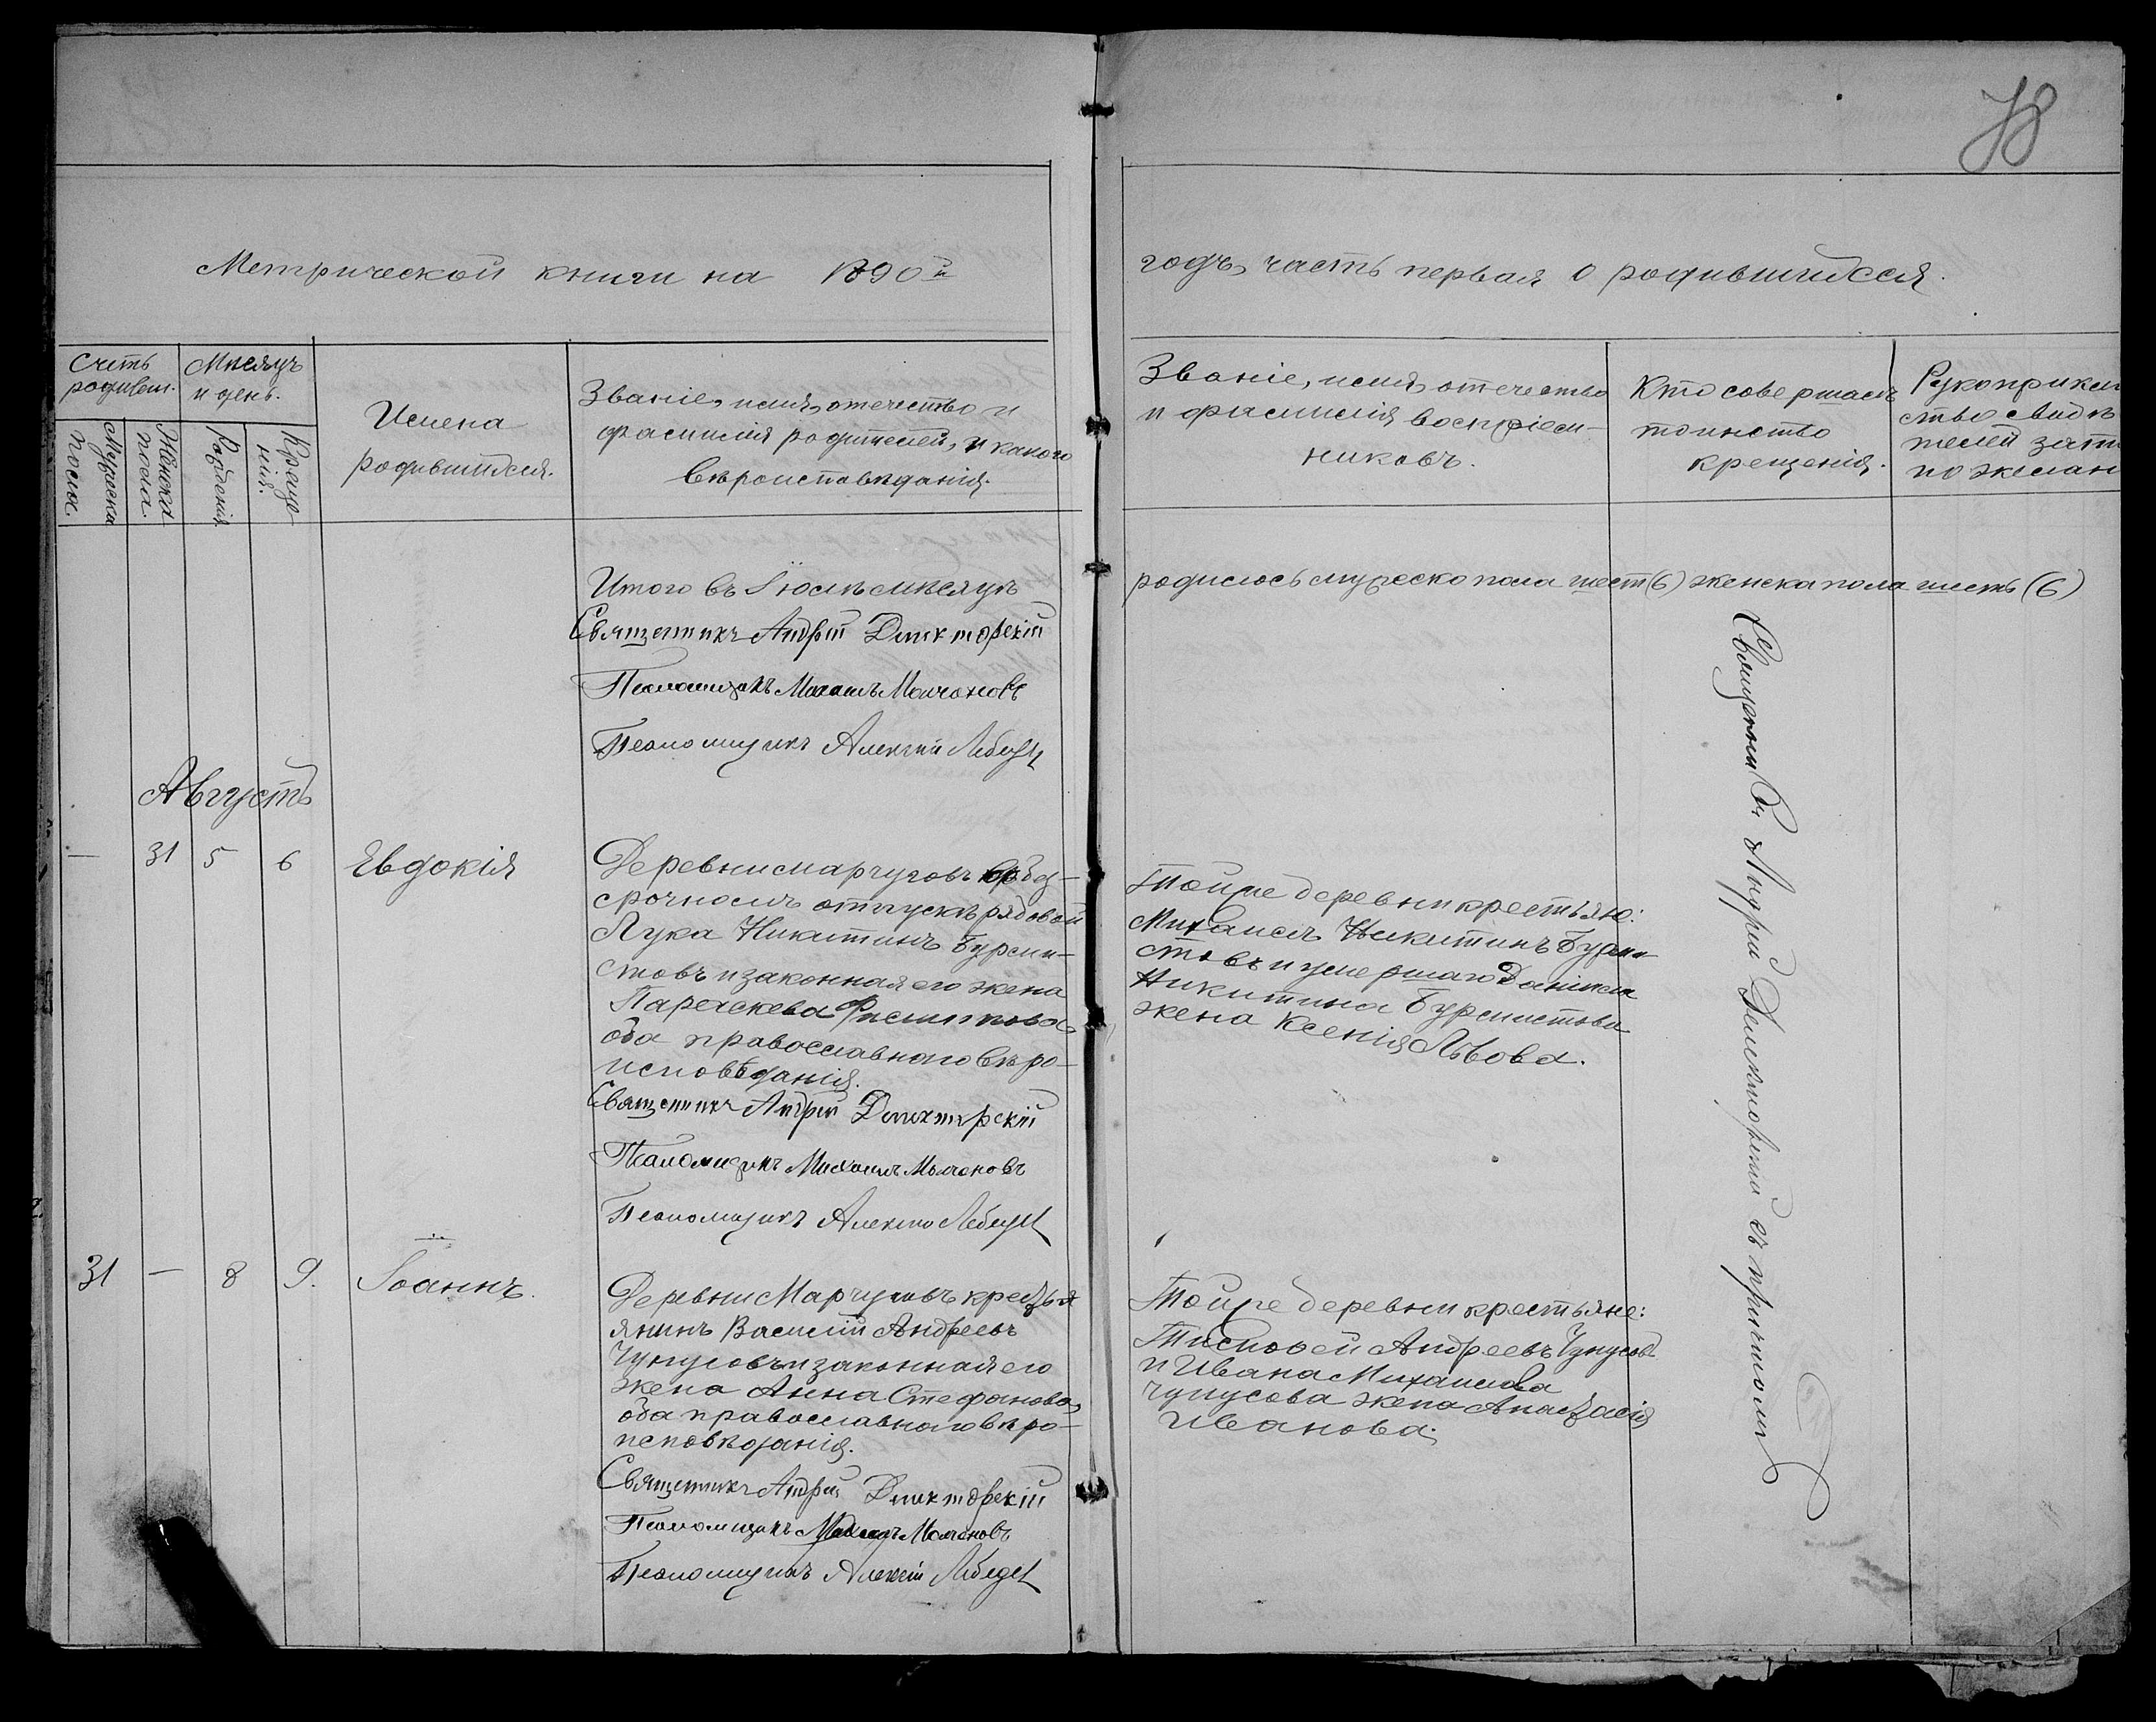 78
Метрической книги на 1890й
годъ, часть первая о родившихся.
Счетъ
родивш.
Мѣсяцъ
и день.
Мужеска
пола.
Женска
пола.
Рожденія
Креще-
нія.
Имена
родившихся.
Званіе, имя, отечество и
фамилія родителей, и какого
вѣроисповѣданія.
Званіе, имя, отечество
и фамилія воспріем-
никовъ.
Кто совершалъ
таинство
крещенія.
Рукоприклад
ство свидѣ
телей
по желан
Итого въ Іюлѣ мѣсяцѣ
родилось мужеско пола шест (6) женска пола шесть (6)
Священникъ Андрей Диликторскій
Псаломщикъ Михаилъ Молчановъ
Псаломщикъ Алексій Лебедев
Августъ
— 31 5 6 Евдокія
Деревни Марчуговъ
срочномъ отпускѣ рядовой
Лука Никитинъ Бурми-
стовъ и законная его жена
Параскева Филиппова
оба православнаго вѣро-
исповѣданія.
Священникъ Андрей Диликторскій
Псаломщикъ Михаилъ Молчановъ
Псаломщикъ Алексій Лебедев
Тойже деревни крестьяне:
Михаилъ Никитинъ Бурми
стовъ и умершаго Даніила
Никитина Бурмистова
жена Ксенія Львова.
31 — 8 9. Іоаннъ.
Деревни Марчуговъ крестья
янинъ Василій Андреевъ
Чупусовъ и законная его
жена Анна Стефанова,
оба православнаго вѣро-
исповѣданія.
Священникъ Андрей Диликторскій
Псаломщикъ Михаилъ Молчановъ
Псаломщикъ Алексій Лебедев
Тойже деревни крестьяне:
Тимофей Андреевъ Чупусовъ
и Ивана Михаилова
Чупусова жена Анастасія
Иванова.
Священникъ Андрей Диликторскій съ причтомъ